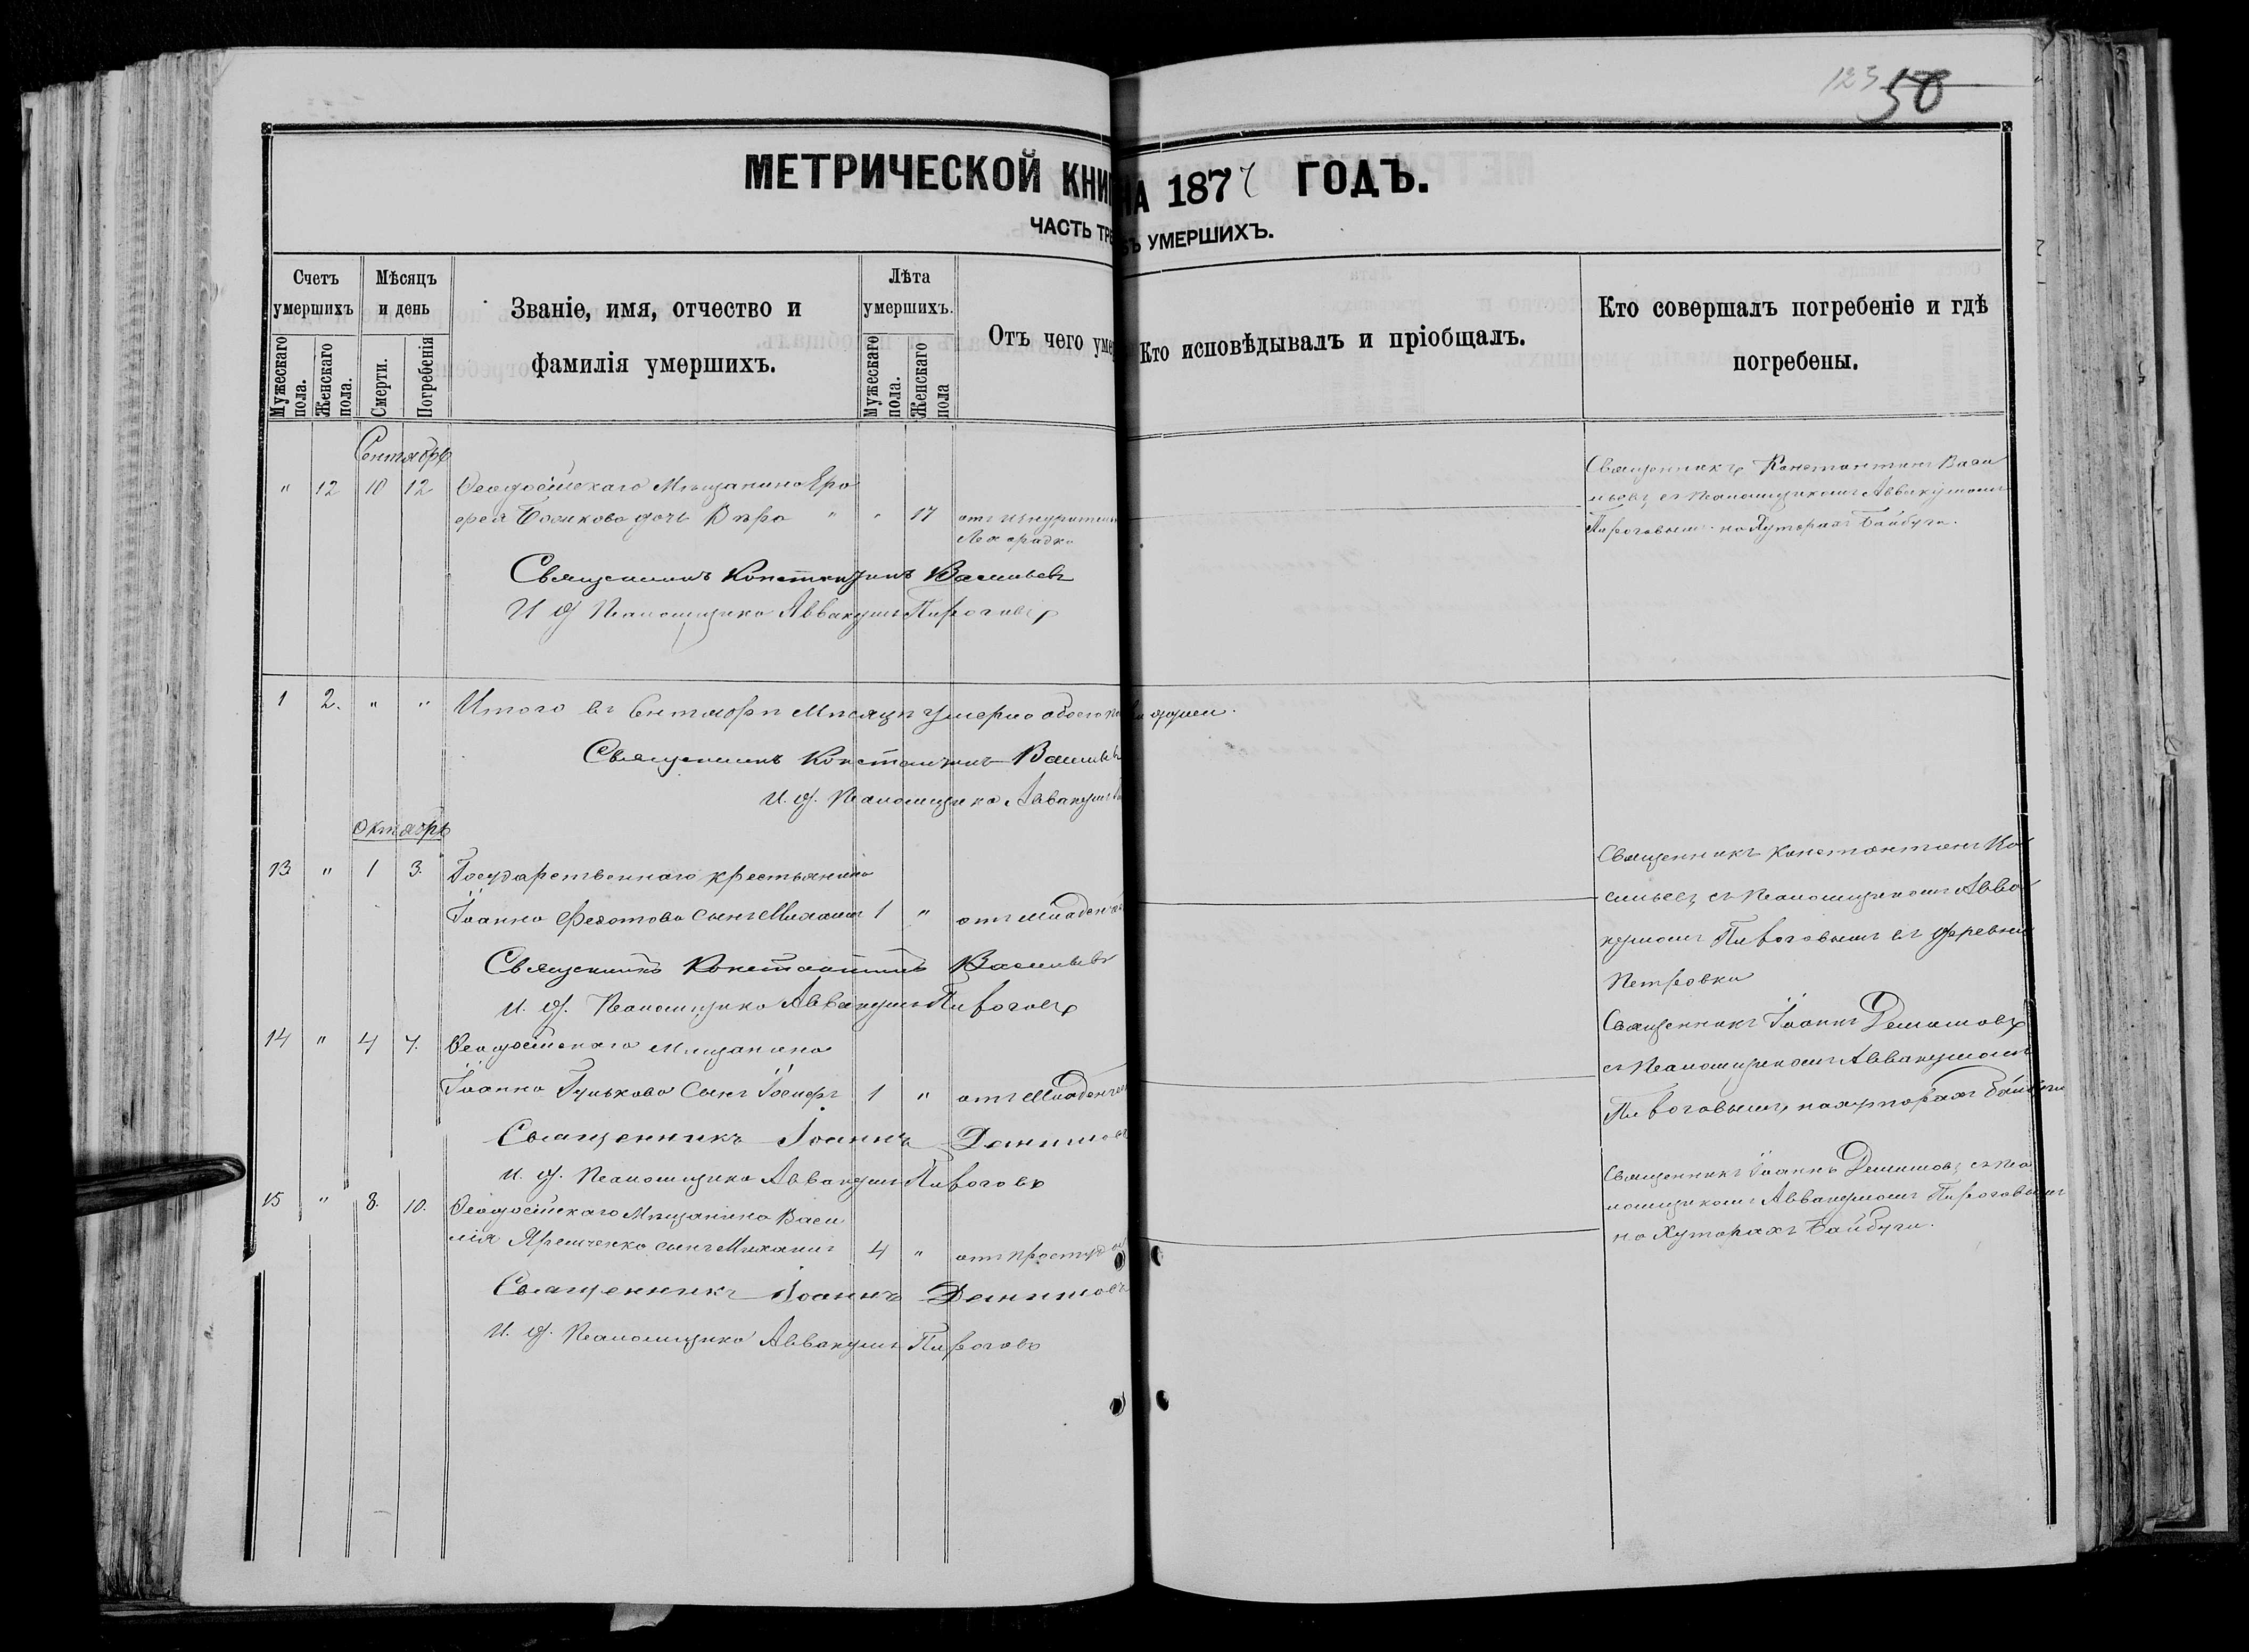 123 50
МЕТРИЧЕСКОЙ КНИ НА 1877 ГОДЪ.
ЧАСТЬ ТРЕ УМЕРШИХЪ.
Счетъ умершихъ
Мужескаго пола.
Женскаго пола.
Мѣсяцъ и день
Смерти.
Погребенія
Званіе, имя, отчество и
фамилія умершихъ.
Лѣта умершихъ.
Мужескаго пола.
Женскаго пола
Отъ чего уме
Кто исповѣдывалъ и пріобщалъ.
Кто совершалъ погребеніе и гдѣ
погребены.
Сентябрь
" 12 10 12 Ѳеодосійскаго Мѣщанина Еро
фея дочь Вѣра " " 17 отъ изнурительн
Лихорадки
Священникъ Константинъ Васи
льевъ съ Псаломщикомъ Аввакумомъ
Пироговымъ на Хуторахъ Байбуги.
Священникъ Константинъ Васильевъ
И д Псаломщика Аввакумъ Пироговъ
1 2. " " Итого въ Сентябрѣ Мѣсяцѣ умерло обоего по души.
Священникъ Константинъ Васильевъ
И. д. Псаломщика Аввакумъ
Октябрь
13 " 1 3. Государственнаго крестьянина
Іоанна Федотова сынъ Михаилъ 1 " отъ младенч
Священникъ Константинъ Ва
сильевъ съ Псаломщикомъ Авва
кумомъ Пироговымъ въ деревни
Петровки
Священникъ Константинъ Васильевъ
И. д. Псаломщика Аввакумъ Пироговъ
14 " 4 7. Ѳеодосійскаго Мѣщанина
Іоанна Гунькова Сынъ Іосифъ 1 " отъ Младенче
Священникъ Іоаннъ
съ Псаломщикомъ Аввакумомъ
Пироговымъ на хуторахъ Байбуги
Священникъ Іоаннъ
И. д. Псаломщика Аввакумъ Пироговъ
15 " 8. 10. Ѳеодосійскаго Мѣщанина Васи
лія Яременко сынъ Михаилъ 4 " отъ простуд
Священникъ Іоаннъ съ Пса
ломщикомъ Аввакумомъ Пироговымъ
на Хуторахъ Байбуги.
Священникъ Іоаннъ
И. д. Псаломщика Аввакумъ Пироговъ